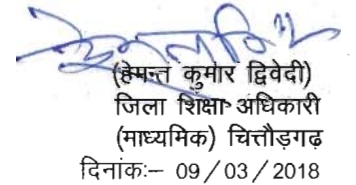 (हेमन्त कुमार द्विवेदी)
जिला शिक्षा अधिकारी
(माध्यमिक) चित्तौड़गढ़
दिनांक:– 09 / 03 / 2018